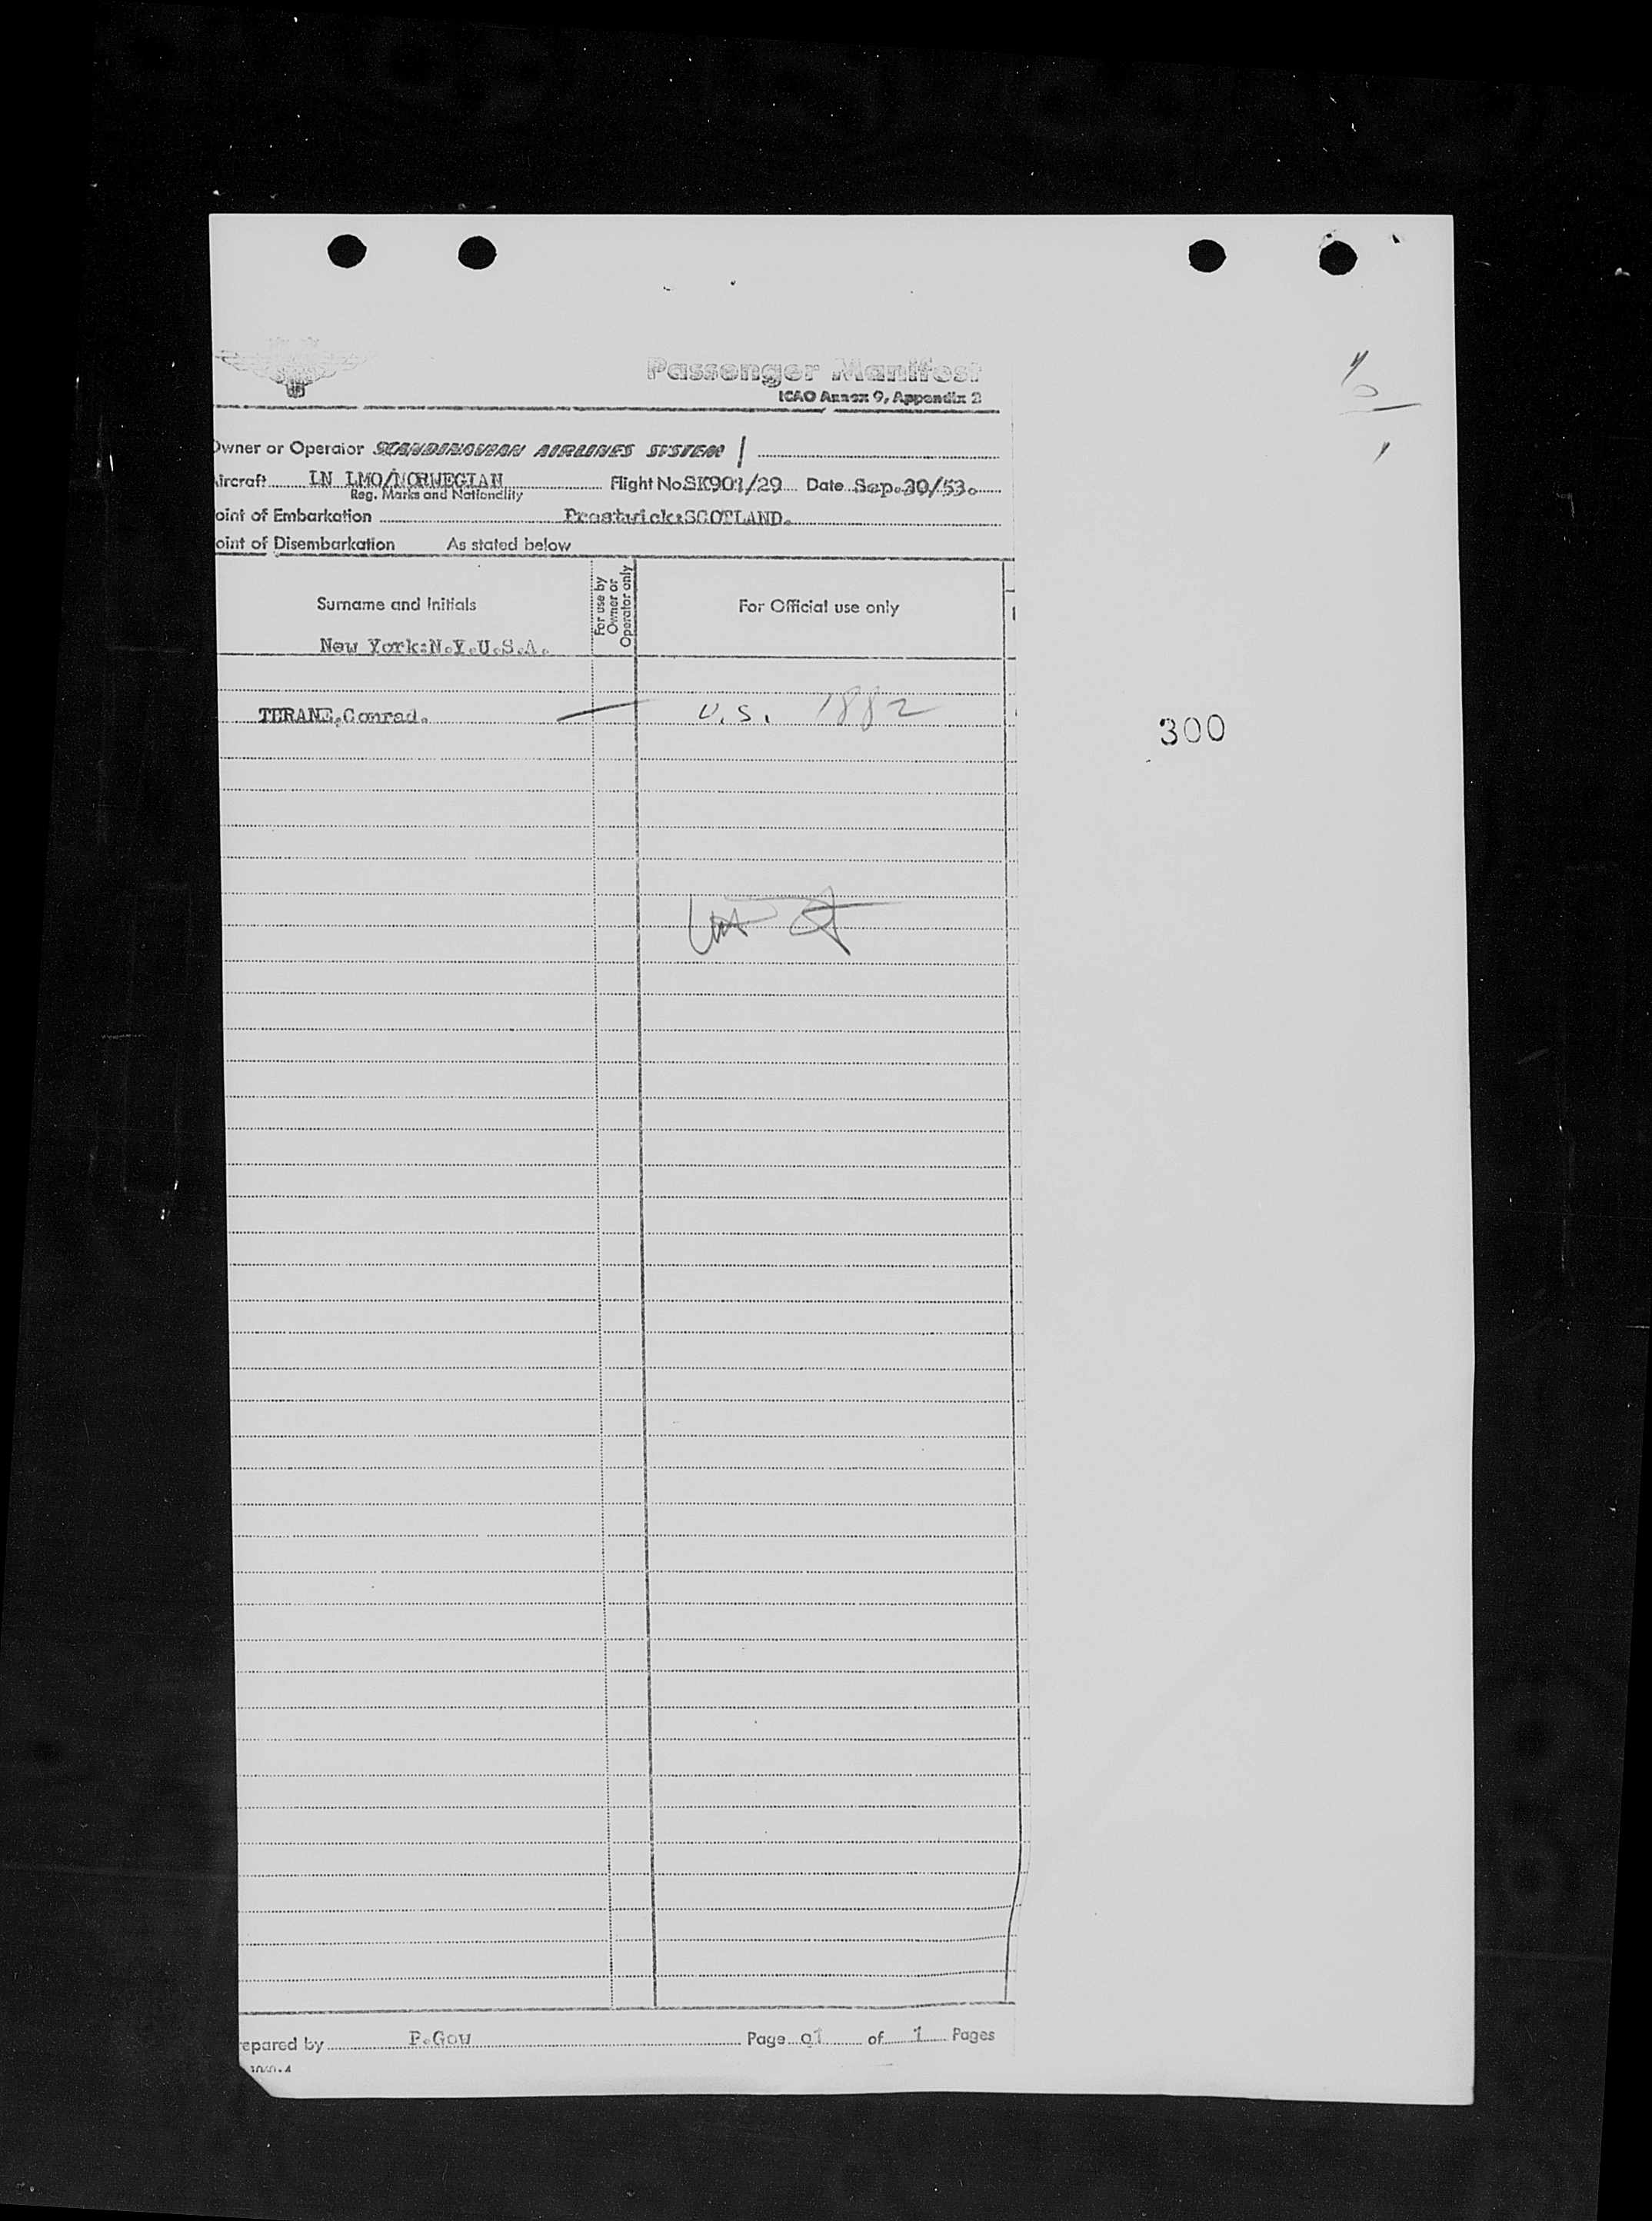 Passenger Manifest
ICAO Annex 9, Appendix 2
Owner or Operator SCANDINAVIAN AIRLINES SYSTEM
Aircraft LN LMO/NORWEGIAN Flight No SK901/29 Date Sep.30/53.
Reg. Marks and Nationality
oint of Embarkation Prestwick:SCOTLAND.
oint of Disembarkation As stated below
Surname and Initials
For use by Owner or Operator only
For Official use only
New York:N.Y.U.S.A.
TERANE,Conrad. U.S. 1882
300
epared by P.Gow Page 01 of 1 Pages